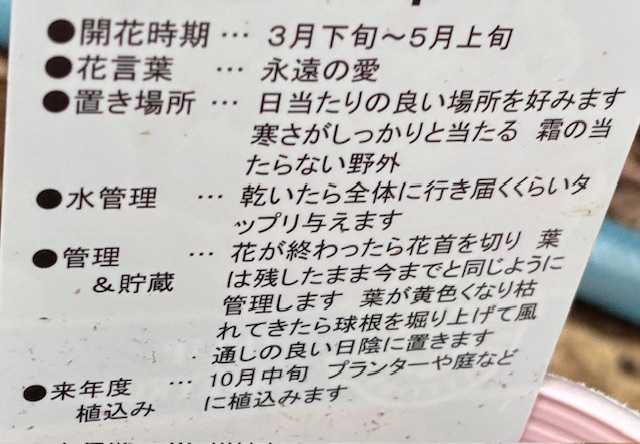 ●開花時期 … 3月下旬～5月上旬
●花言葉 … 永遠の愛
●置き場所 … 日当たりの良い場所を好みます
寒さがしっかりと当たる 霜の当
たらない野外
●水管理 … 乾いたら全体に行き届くくらいタ
ップリ与えます
●管理 … 花が終わったら花首を切り 葉
&貯蔵 は残したまま今までと同じように
管理します 葉が黄色くなり枯
れてきたら球根を堀り上げて風
通しの良い日陰に置きます
●来年度 … 10月中旬 プランターや庭など
植込み に植込みます